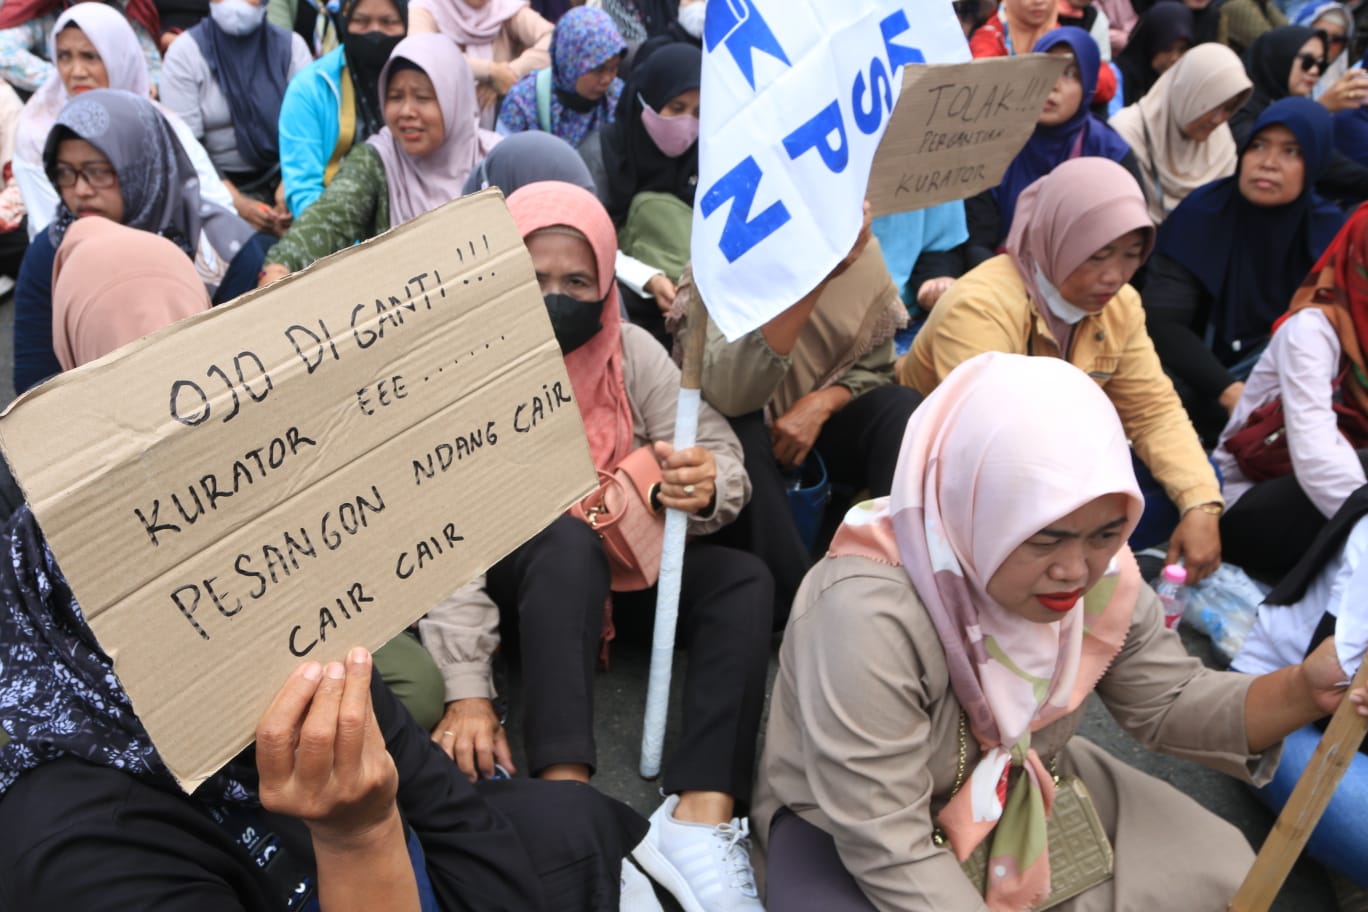 OJO DI GANTI !!!
KURATOR EEE......
PESANGON NDANG CAIR
CAIR CAIR
KSPN
KSPN
TOLAK!!!
PERGANTIAN
KURATOR